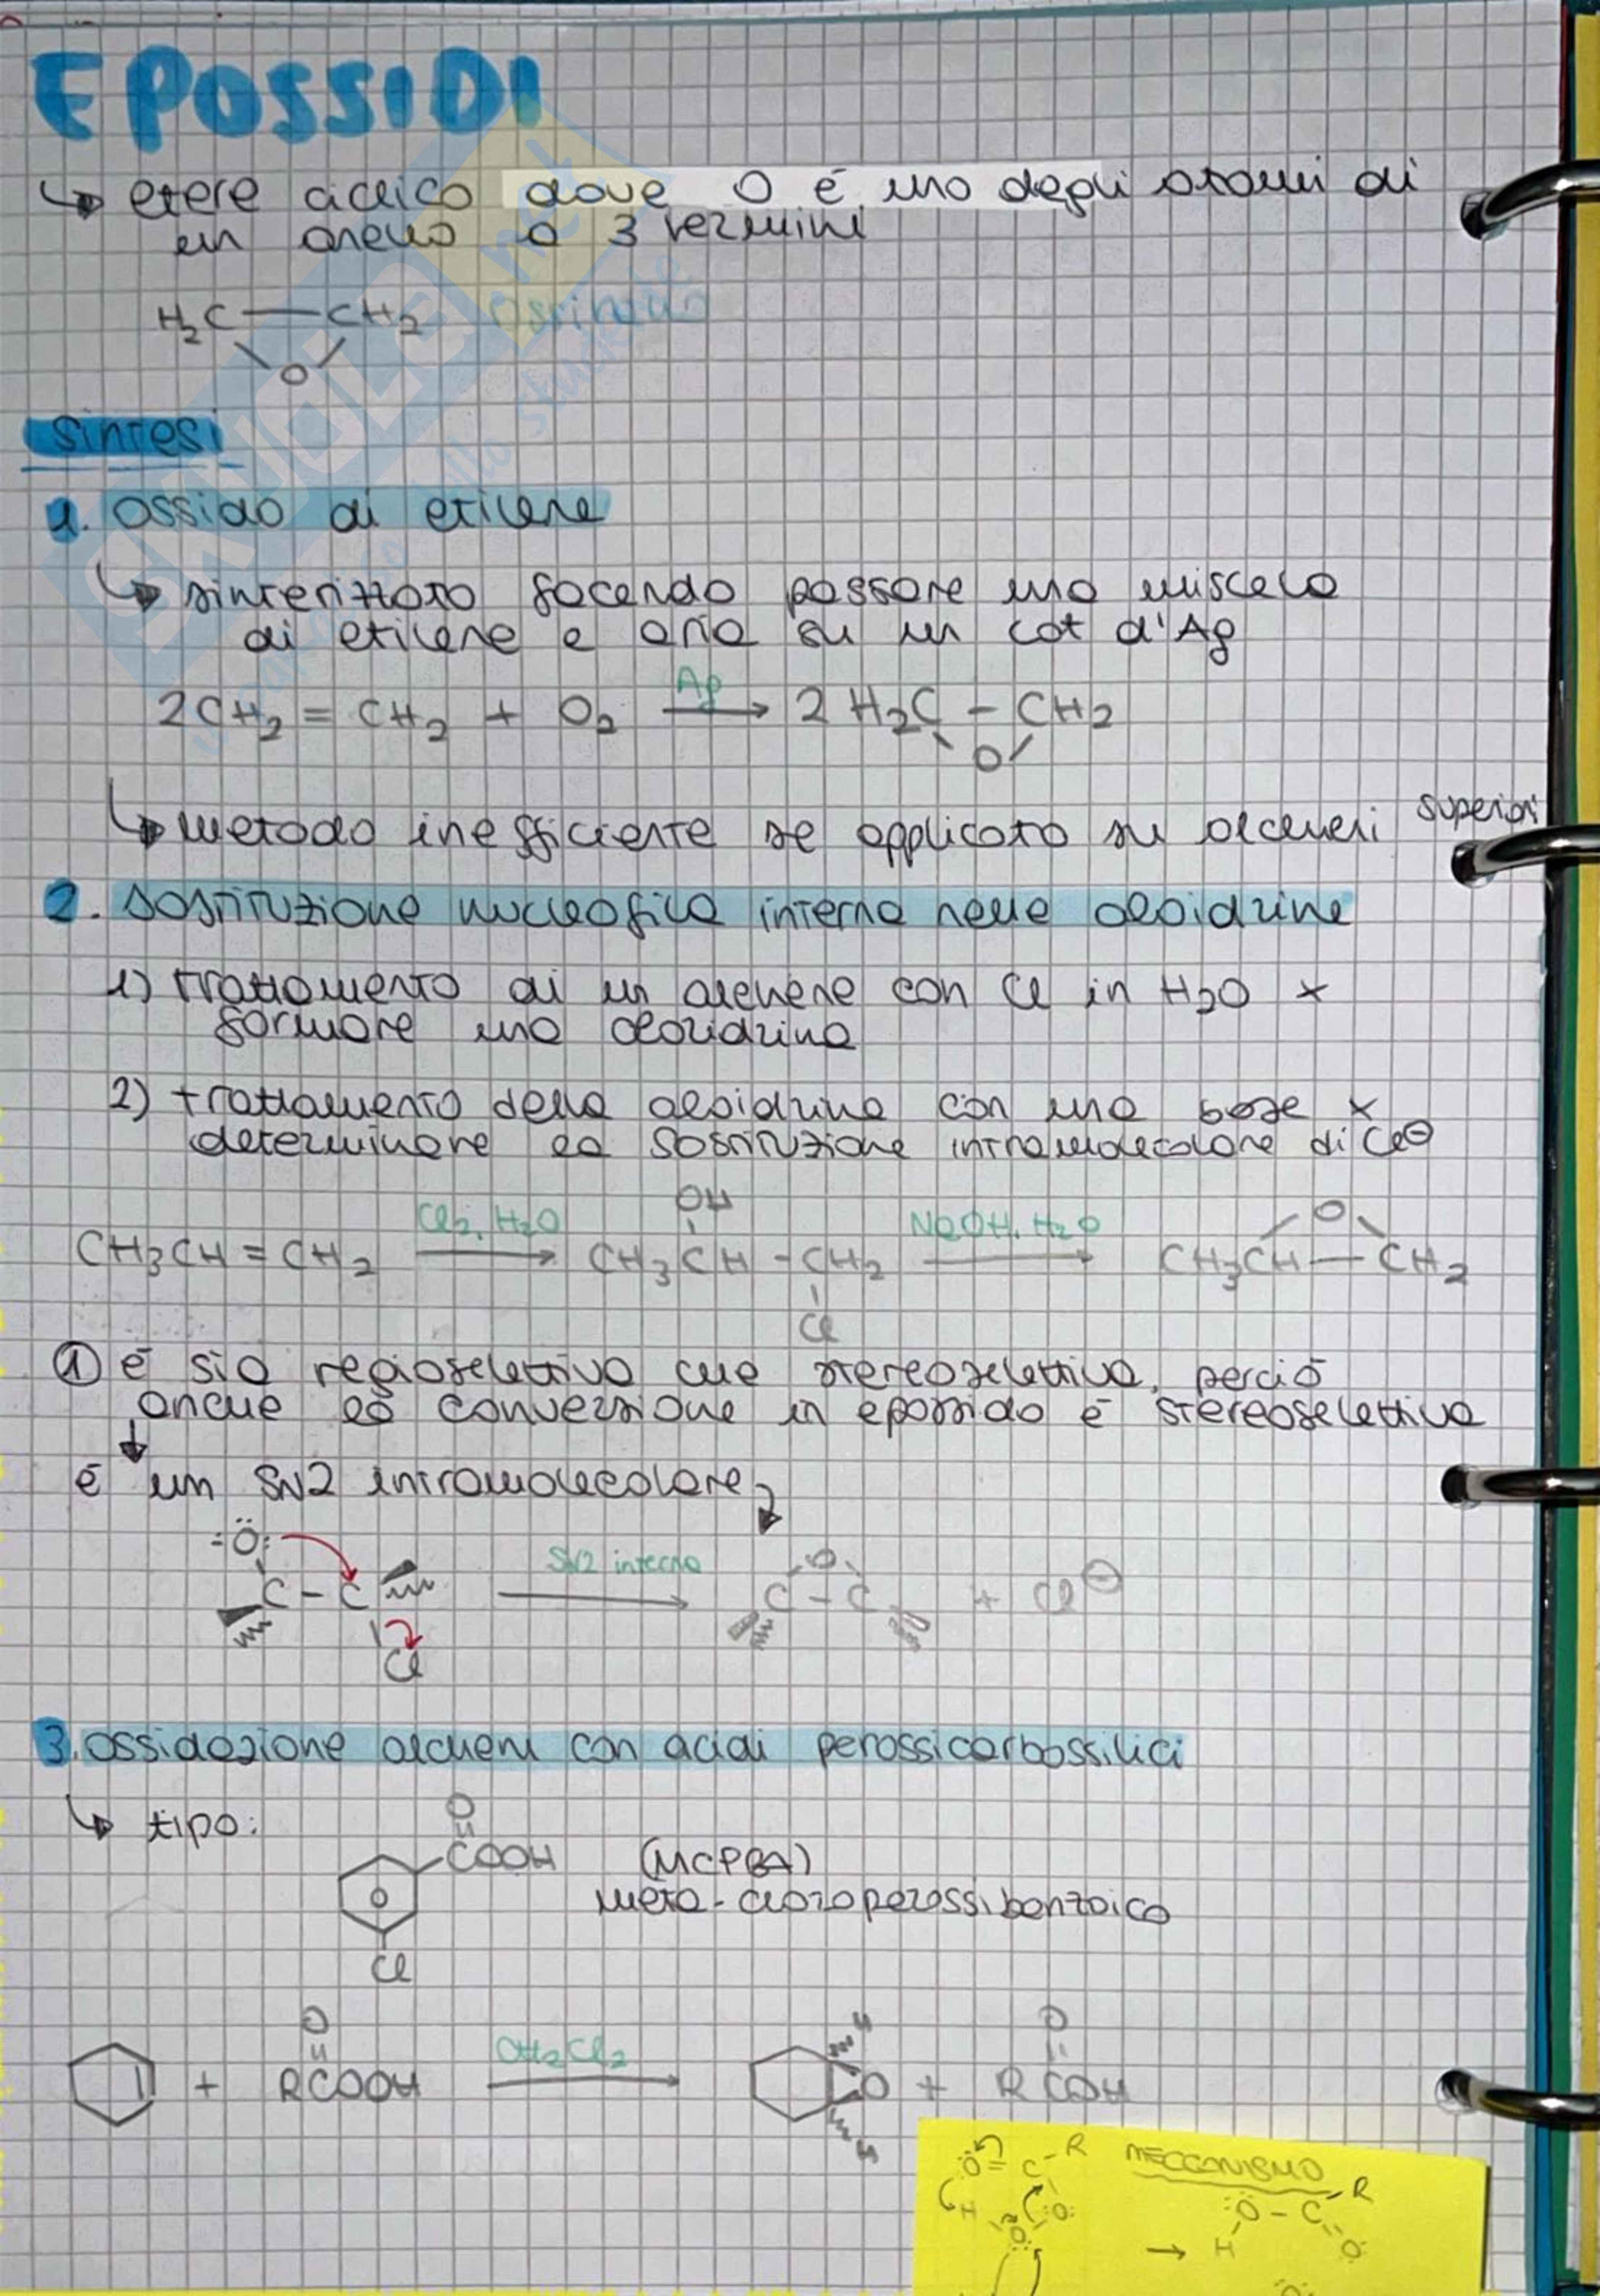 EPOSSIDI
↳ etere ciclico dove O è uno degli atomi di
un anello a 3 termini
H₂C — CH₂ Ossirano
O
Sintesi
1. ossido di etilene
↳ sintetizzato facendo passare una miscela
di etilene e aria su un cat d'Ag
2CH₂ = CH₂ + O₂ Ag → 2 H₂C - CH₂
O
↳ metodo inefficiente se applicato su alcheni superiori
2. sostituzione nucleofila interna nelle cloidrine
1) trattamento di un alchene con Cl in H₂O x
formare una cloridrina
2) trattamento della cloidrina con una base x
determinare la sostituzione intramolecolare di Cl⊖
OH O
CH₃CH = CH₂ Cl₂, H₂O → CH₃CH - CH₂ NaOH, H₂O → CH₃CH — CH₂
Cl
① è sia regioselettiva che stereoselettiva, perciò
anche la conversione in epossido è stereoselettiva
↓
è un SN2 intramolecolare
:Ö: O
C - C SN2 interna → C - C + Cl⊖
Cl
3. ossidazione alcheni con acidi perossicarbossilici
↳ tipo:
O
COOH (MCPBA)
meta-cloroperossibenzoico
Cl
O O
+ RCOOH CH₂Cl₂ → O + RCOH
H
H
MECCANISMO
O = C - R
H O
O
→ H O - C - R
O
SKUOLA.net